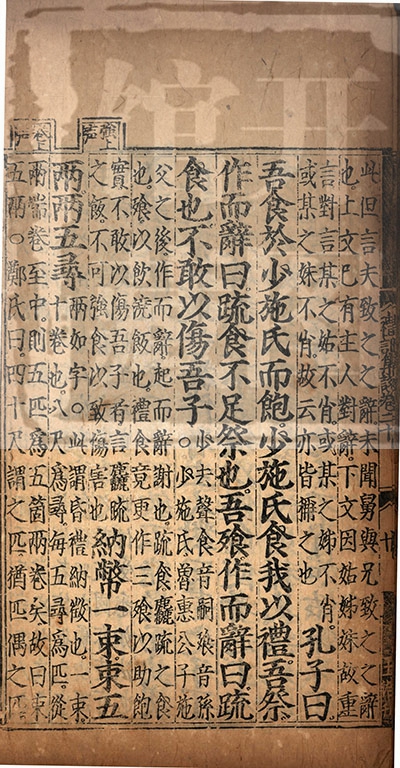 此但言夫致之之辭未聞舅與兄致之之辭
也上文已有主人對辭下文因姑姊妹故重
言對言某之姑不肖或某之姊不肖
或某之妹不肖故云亦皆稱之也
孔子曰
吾食於少施氏而飽少施氏食我以禮吾祭
作而辭曰疏食不足祭也吾飧作而辭曰疏
食也不敢以傷吾子
少去聲食音嗣飧音孫
〇少施氏魯惠公子施
父之後作而辭起而辭謝也疏食麤疏之食
也飧以飲澆飯也禮食竟更作三飧以助飽
實不敢以傷吾子者言麤疏
之飯不可強食以致傷害也
納幣一束束五
強上声
兩兩五尋
兩如字〇此謂昏禮納幣也一束
十卷也八尺爲尋每五尋爲匹從
兩端卷至中則五匹爲五箇兩卷矣故曰束
五兩〇鄭氏曰四十尺謂之匹猶匹偶之匹
卷上声